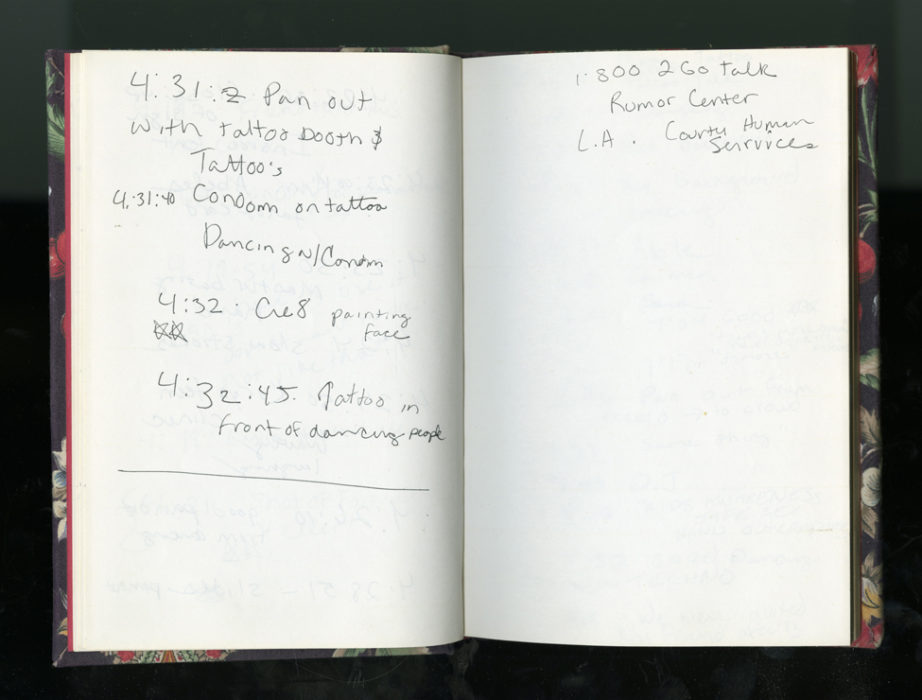 4:31:2 Pan out
with tattoo Booth &
Tattoo's
4:31:40 Condom on tattoo
Dancing w/Condm
4:32. Cre8 painting
face
4:32:45. Tattoo in
front of dancing people
1:800 2 Go talk
Rumor Center
L.A. County Human
Services